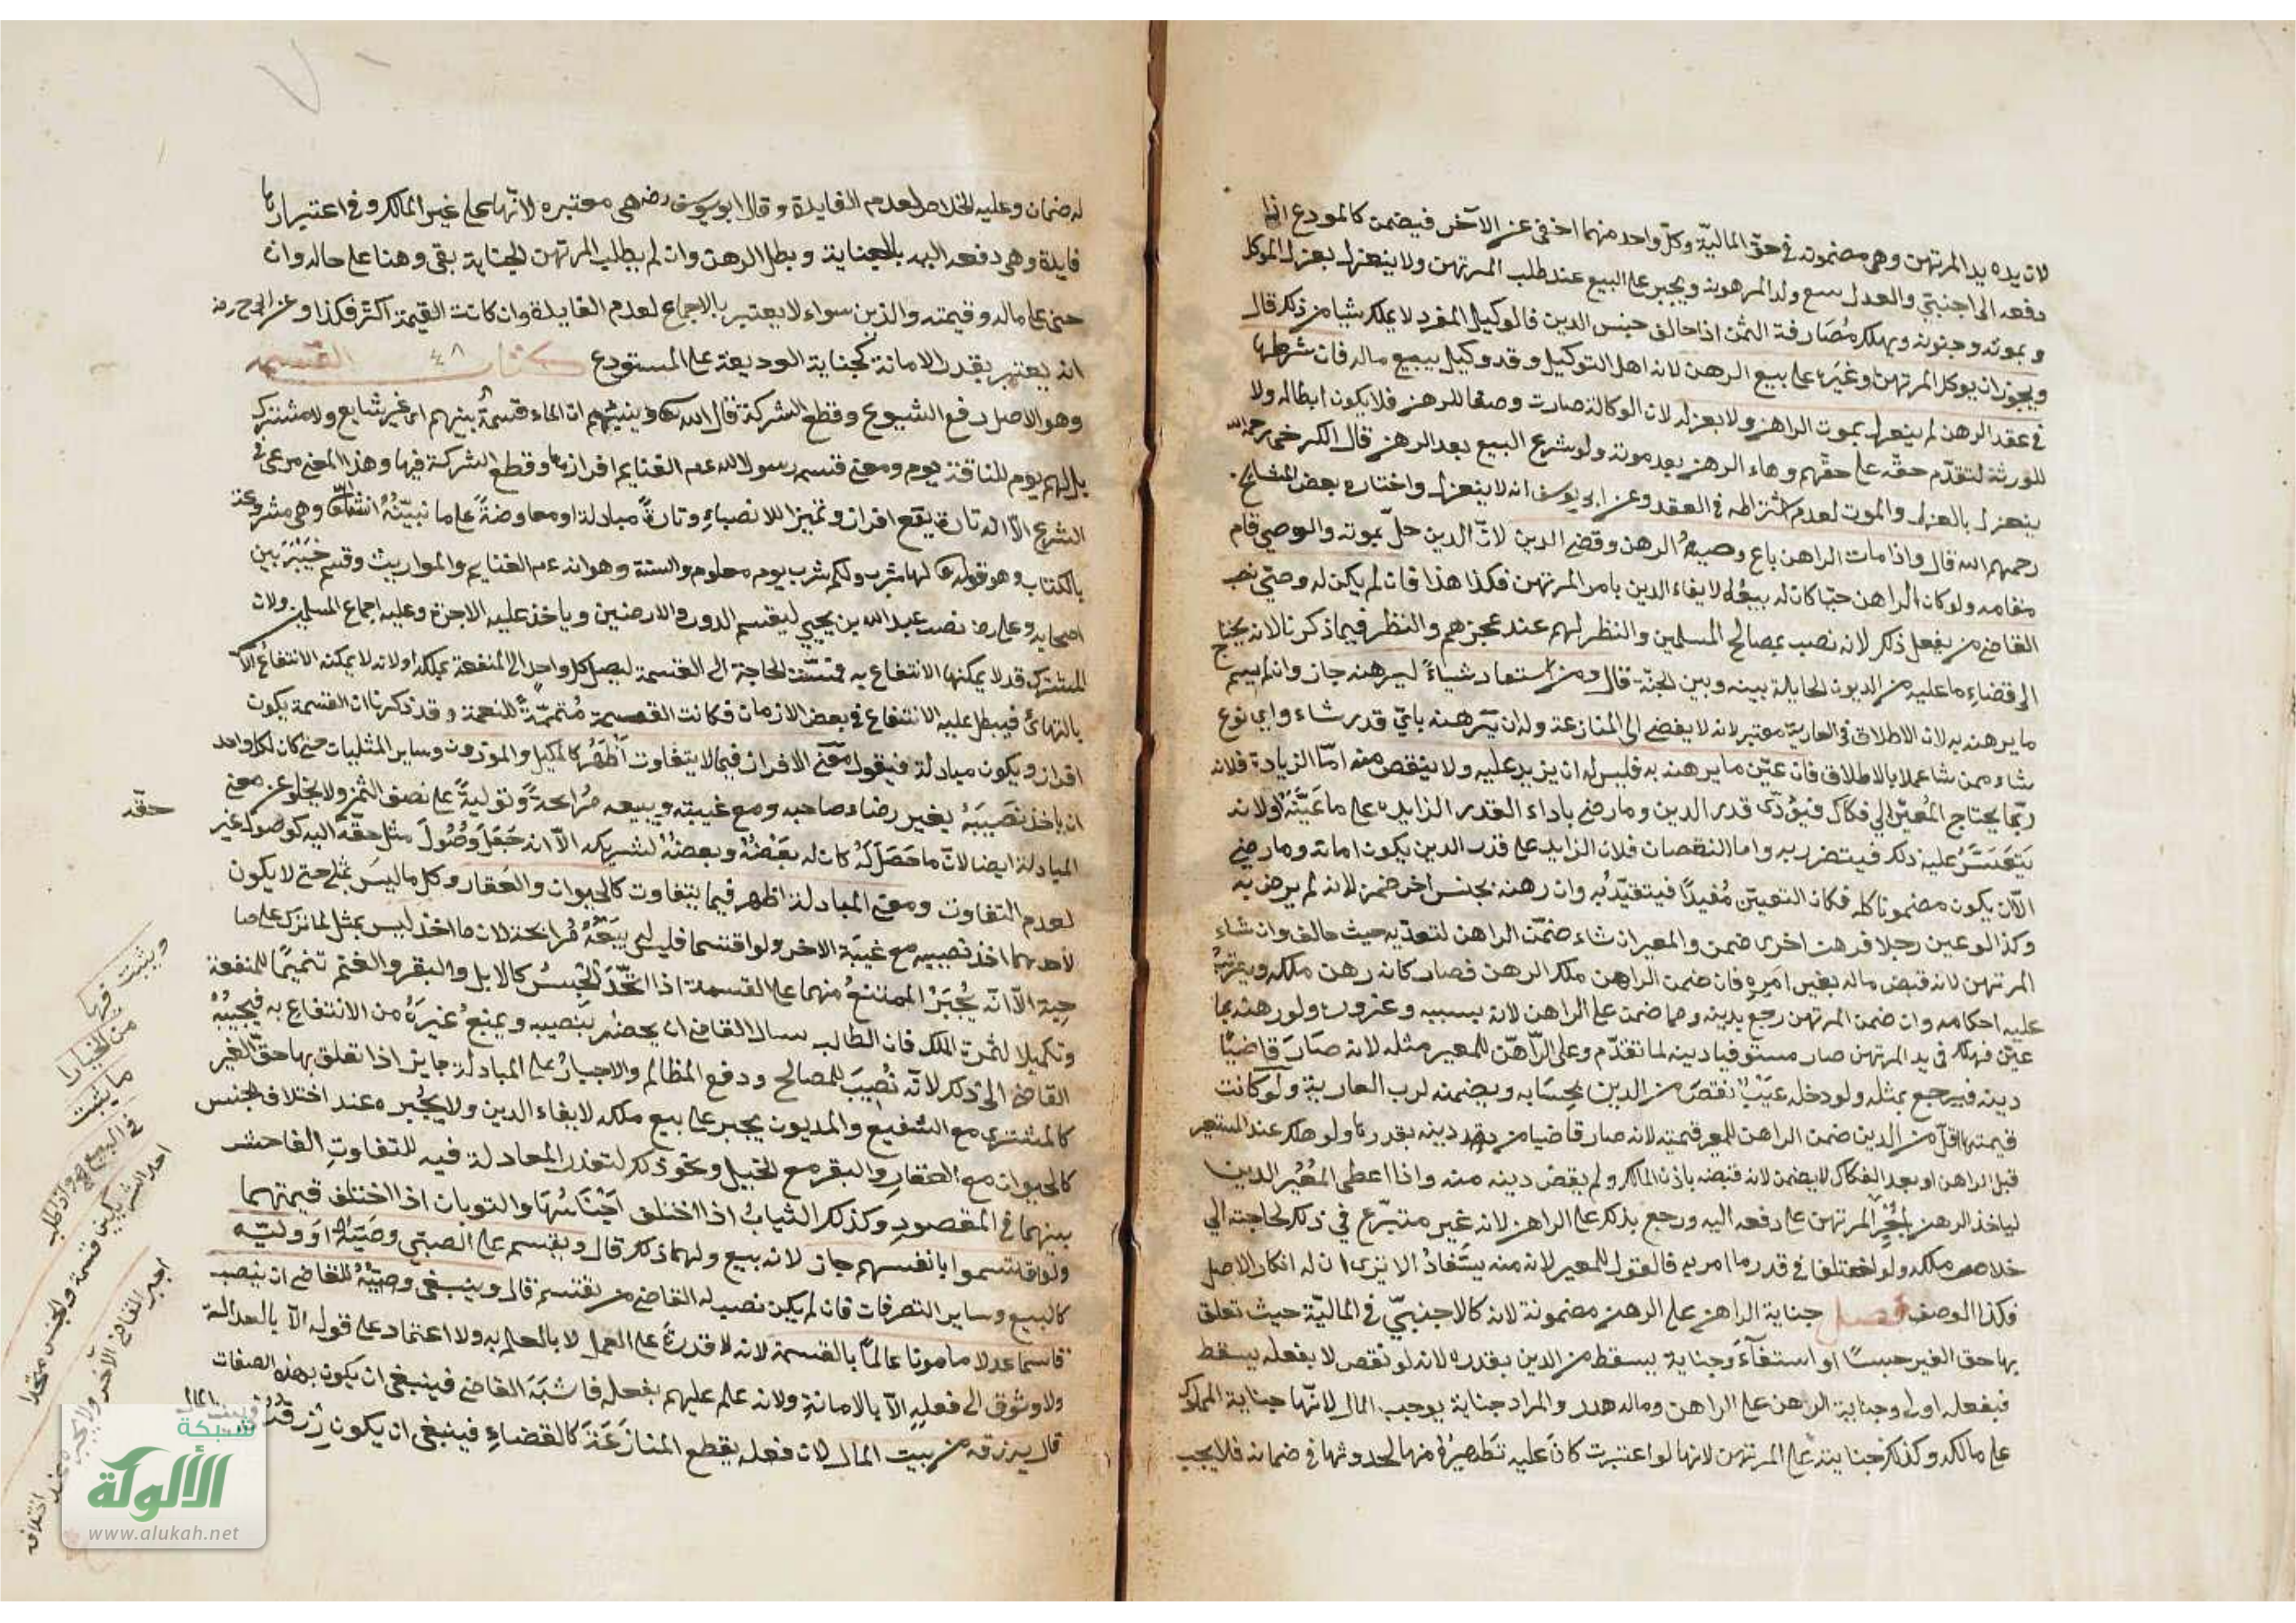 لان يده يد المرتهن وهي مضمونه في حق المالية وكل واحد منهما اخفى عن الآخر فيضمن كالمودع اذا
دفعه الى اجنبي والعدل ببيع ولد المرهونه ويجبر على البيع عند طلب المرتهن ولا ينعزل بعزل الموكل
و بموته وجنونه ويملك مصارفة الثمن اذا خالف جنس الدين فالوكيل المفرد لا يملك شيا من ذلك قال
ويجوز ان يوكل المرتهن وغيره على بيع الرهن لانه اهل التوكيل وقد وكيل ببيع ماله فان شرطها
في عقد الرهن لم ينعزل بموت الراهن ولا بعزله لان الوكالة صارت وصفا للرهن فلا يكون ابطاله ولا
للورثة لتقدم حقه على حقهم وهاء الرهن بعد موته ولو شرع البيع بعد الرهن قال الكرخى رحمه الله
ينعزل بالعزل والموت لعدم اشتراطه في العقد وعن ابي يوسف انه لا ينعزل واختاره بعض المشايخ
رحمهم الله قال واذا مات الراهن باع وصيه الرهن وقضى الدين لان الدين حل بموته والوصي قام
مقامه ولو كان الراهن حيا كان له بيعه لايفاء الدين بامر المرتهن فكذا هذا فان لم يكن له وصي نصب
القاضي من يفعل ذلك لانه نصب بمصالح المسلمين والنظر لهم عند عجزهم والنظر فيما ذكرنا لانه يحتاج
الى قضاء ما عليه من الديون الحايلة بينه وبين الجنة قال ومن استعاد شياء ليرهنه جاز وان لم يسم
ما يرهنه به لان الاطلاق في العارية معتبر لانه لا يفضي الى المنازعة وله ان يرهنه باي قدر شاء واي نوع
شاء ممن شا عملا بالاطلاق فان عين ما يرهنه به فليس له ان يزيد عليه ولا ينقص منه اما الزيادة فلانه
ربما يحتاج المعير الى فكاك فيؤدى قدر الدين وما رضي باداء القدر الزايد على ما عينه او لانه
يتعسر عليه ذلك فيتضرر به واما النقصان فلان الزايد على قدر الدين يكون امانة وما رضي
الا ان يكون مضمونا كله فكان التعيين مفيدا فيتقيد به وان رهنه بجنس اخر ضمن لانه لم يرض به
وكذا لو عين رجلا فرهن اخرى ضمن والمعير ان شاء ضمن الراهن لتعديه حيث خالف وان شاء
المرتهن لانه قبض ماله بغير امره فان ضمن الراهن ملك الرهن فصار كانه رهن ملكه ويترتب
عليه احكامه وان ضمن المرتهن رجع بدينه وما ضمن على الراهن لانه بسببه وغروره ولو رهنه بما
عين فهلك في يد المرتهن صار مستوفيا دينه لما تقدم وعلى الراهن للمعير مثله لانه صار قاضيا
دينه فيرجع بمثله ولو دخله عيب نقص من الدين بحسابه ويضمنه لرب العارية ولو كانت
قيمتها اقل من الدين ضمن الراهن للمعير قيمته لانه صار قاضيا من دينه بقدرها ولو هلك عند المستعير
قبل الراهن او بعد الفكاك لا يضمن لانه قبضه باذن المالك ولم يقض دينه منه واذا اعطى المعير الدين
لياخذ الرهن يجبر المرتهن على دفعه اليه ورجع بذلك على الراهن لانه غير متبرع في ذلك لحاجته الي
خلاص ملكه ولو اختلفا في قدر ما امر به فالقول للمعير لانه منه يستفاد الا يرى ان له انكار الاصل
فكذا الوصف فصل جناية الراهن على الرهن مضمونة لانه كالاجنبي في المالية حيث تعلق
بها حق الغير حبسا او استيفآء وجناية يسقط من الدين بقدره لانه لو نقص لا بفعله يسقط
فبفعله اولى وجناية الرهن على الراهن وماله هدر والمراد جناية يوجب المال لانها جناية المملوك
على مالكه وكذلك جنايته على المرتهن لانها لو اعتبرت كان عليه تطهيره منها لحدوثها في ضمانه فلا يجب
له ضمان وعليه الخلاص لعدم الفايدة وقال ابو يوسف رضه هي معتبره لانها على غير المالك وفي اعتبارها
فايدة وهي دفعه اليه بالجناية وبطل الرهن وان لم يطلب المرتهن الجناية بقي رهنا على حاله وان
جنى على ماله وقيمته والدين سواء لا يعتبر بالاجماع لعدم الفايدة وان كانت القيمة اكثر فكذا وعن ابي ح رضه
انه يعتبر بقدر الامانة كجناية الوديعة على المستودع كتاب القسمه ٤٨
وهو الاصل رفع الشيوع وقطع الشركة قال الله تعالى ونبئهم ان الماء قسمة بينهم اى غير شايع ولا مشترك
بل لهم يوم وللناقة يوم ومعنى قسم رسول الله عم الغنايم افرازها وقطع الشركة فيها وهذا المعنى مرعى في
الشرع الا انه تارة يقع افرازا وتميزا للانصباء وتارة مبادلة او معاوضة على ما نبينه ان شاء الله وهي مشروعة
بالكتاب وهو قوله تعالى لها شرب ولكم شرب يوم معلوم والسنة وهو انه عم الغنايم والمواريث وقسم خيبر بين
اصحابه وعلى رضه نصب عبد الله بن يحيى ليقسم الدور والارضين وياخذ عليه الاجرة وعليه اجماع المسلمين ولان
المشترك قد لا يمكنها الانتفاع به فمست الحاجة الى القسمة ليصل كل واحد الى المنفعة بملكه او لانه لا يمكنه الانتفاع الا
بالتهائ فيبطل عليه الانتفاع في بعض الازمان فكانت القسمة متممة للنعمة وقد ذكرنا ان القسمة يكون
افراز ويكون مبادلة فنقول معنى الافراز فيما لا يتفاوت اظهر كالمكيل والموزون وساير المثليات حتى كان لكل واحد
ان ياخذ نصيبه بغير رضاء صاحبه ومع غيبته ويبيعه مرابحة وتولية على نصف الثمن ولا يخلو عن معنى
المبادلة ايضا لان ما حصل له كان له بعضه وبعضه لشريكه الا انه جعل وصول مثل حقه اليه كوصول غير
حقه
لعدم التفاوت ومعنى المبادلة اظهر فيما يتفاوت كالحيوان والعقار وكل ما ليس بمثلى حتى لا يكون
لاحدهما اخذ نصيبه مع غيبة الاخر ولو اقتسما فليس له بيعه مرابحة لان ما اخذ ليس بمثل لما ترك على صا
حبه الا انه يجبر الممتنع منهما على القسمة اذا اتحد الجنس كالابل والبقر والغنم تتميما للمنفعة
وتكميلا لثمرة الملك فان الطالب سال القاضي ان يخصه بنصيبه ويمنع غيره من الانتفاع به فيجيبه
القاضي الى ذلك لانه نصب للمصالح ودفع المظالم والاجبار على المبادلة جايز اذا تعلق بها حق الغير
كالمشترى مع الشفيع والمديون يجبر على بيع ملكه لايفاء الدين ولا يجبره عند اختلاف الجنس
كالحيوان مع العقار والبقر مع الخيل ونحو ذلك لتعذر المعادلة فيه للتفاوت الفاحش
بينهما في المقصود وكذلك الثياب اذا اختلف اجناسها والثوبان اذا اختلف قيمتهما
ولو اقتسموا بانفسهم جاز لانه بيع ولهما ذلك قال ويقسم على الصبي وصيه او وليه
كالبيع وساير التصرفات فان لم يكن نصب له القاضي من يقتسم قال وينبغي للقاضي ان ينصب
قاسما عدلا مامونا عالما بالقسمة لانه لا قدرة على العمل لا بالعلم به ولا اعتماد على قوله الا بالعدالة
ولا وثوق الى فعله الا بالامانة ولانه علم عليهم بفعله فاشبه القاضي فينبغي ان يكون بهذه الصفات
قال يرزقه من بيت المال لان فعله يقطع المنازعة كالقضاء فينبغي ان يكون رزقه
ويثبت فيها
من الخيار
ما يثبت
في البيع واذا طلب
احد الشريكين قسمة والجنس متحد
اجبر القاضي الآخر ولا يجبره عند اختلافه
شبكة
الألوكة
www.alukah.net